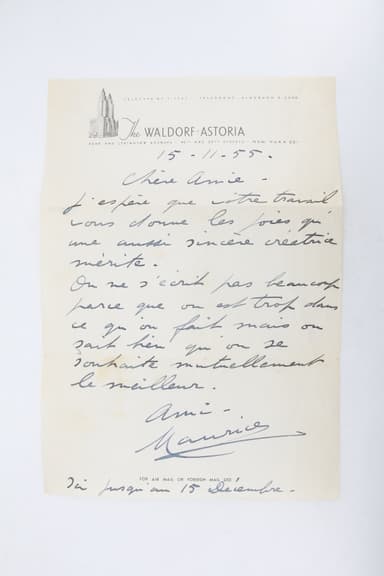 The WALDORF-ASTORIA
PARK AND LEXINGTON AVENUES · 49TH AND 50TH STREETS · NEW YORK
15-11-55.
Chère Amie -
J'espère que votre travail
vous donne les joies qu'
une aussi sincère créatrice
mérite.
On ne s'écrit pas beaucoup
parce que on est trop dans
ce qu'on fait mais on
sait bien qu'on se
souhaite mutuellement
le meilleur.
Ami -
Maurice
FOR AIR MAIL OR FOREIGN MAIL USE
Ici jusqu'au 15 Décembre.